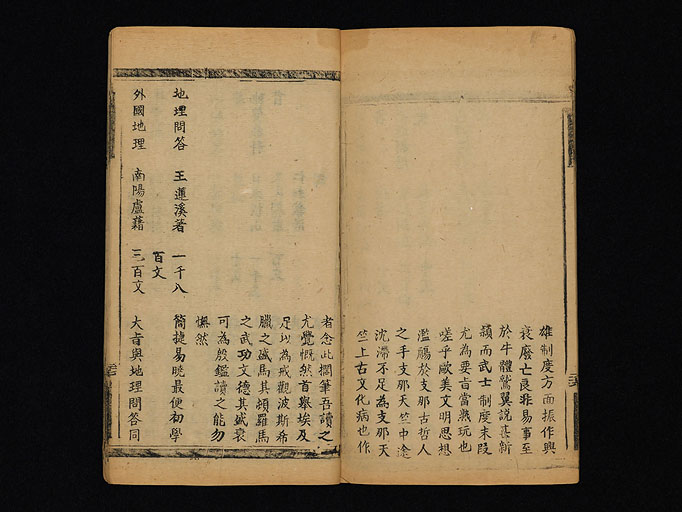 雄制度方面振作興
衰廢亡良非易事至
於牛體鷲翼説甚新
穎而武士制度末段
尤為要肯當熟玩也
嗟乎歐美文明思想
濫觴於支那古哲人
之手支那天竺中途
沈滯不足為支那天
竺上古文化病也作
者念此擱筆吾讀之
尤覺慨然首舉埃及
足以為戒觀波斯希
臘之滅馬其頓羅馬
之武功文德其盛衰
可為殷鑑讀之能勿
憮然
地理問答 王蓮溪著 一千八百文 簡捷易曉最便初學
外國地理 南陽盧藉 三百文 大旨與地理問答同